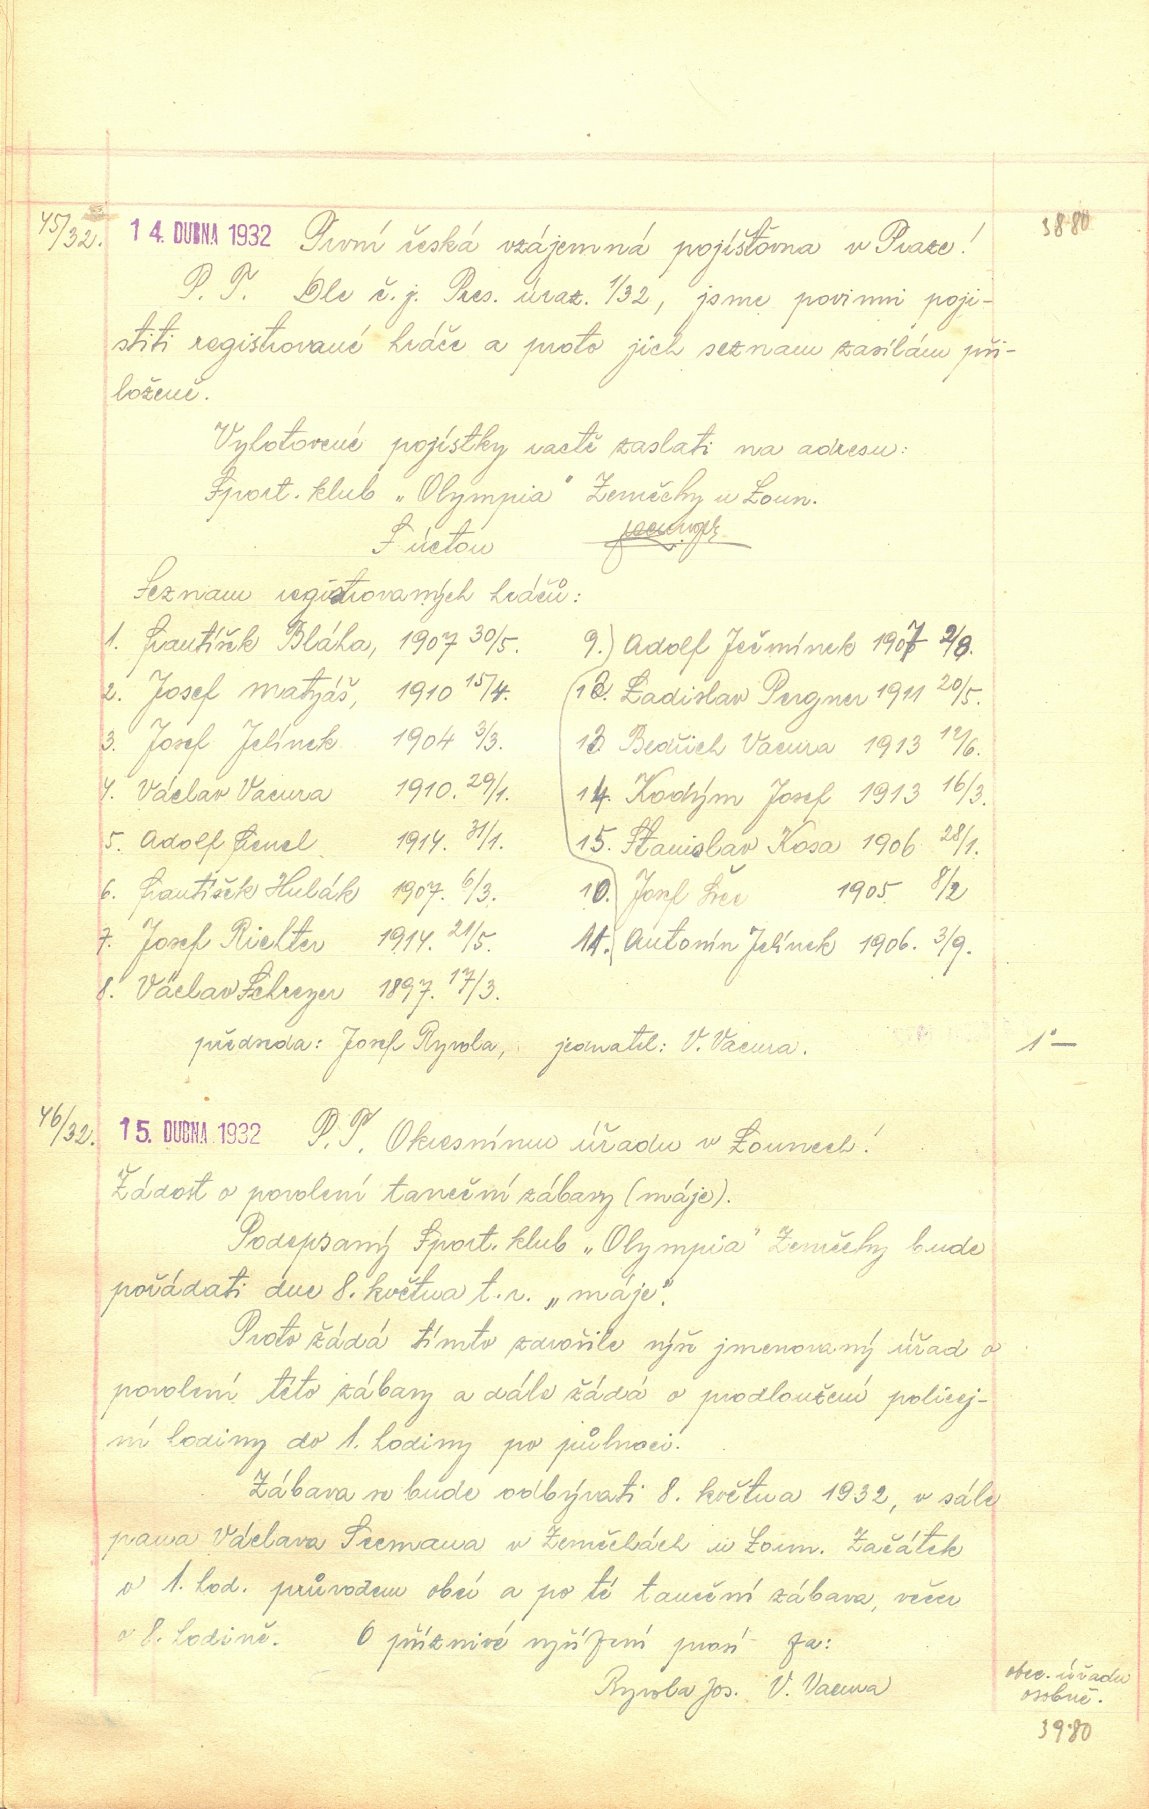 45/32. 14. DUBNA 1932 První česká vzájemná pojišťovna v Praze! 38·80
P. T. Dle č. j. Pres. úraz. 1/32, jsme povinni poji-
stiti registrované hráče a proto jich seznam zasílám při-
loženě.
Vyhotovené pojistky račtě zaslati na adresu:
Sport. klub „Olympia" Zeměchy u Loun.
S úctou
Seznam registrovaných hráčů:
1. František Bláha, 1907 30/5. 9.) Adolf Ječmínek 1907 2/8.
2. Josef Matyáš, 1910 15/4. 12. Ladislav Pergner 1911 20/5.
3. Josef Jelínek 1904 3/3. 13. Bedřich Vacura 1913 12/6.
4. Václav Vacura 1910. 29/1. 14. Kodým Josef 1913 16/3.
5. Adolf 1914. 31/1. 15. Stanislav Kosa 1906 28/1.
6. František Hulák 1907. 6/3. 10. Josef 1905 8/2
7. Josef Richter 1914. 21/5. 11. Antonín Jelínek 1906. 3/9.
8. Václav 1897. 17/3.
předseda: Josef Ryvola, jednatel: V. Vacura. 1·—
46/32. 15. DUBNA 1932 P. T. Okresnímu úřadu v Lounech!
Žádost o povolení taneční zábavy (máje).
Podepsaný Sport. klub „Olympia" Zeměchy bude
pořádati dne 8. května t. r. „máje".
Proto žádá tímto zdvořile výše jmenovaný úřad o
povolení této zábavy a dále žádá o prodloužení policej-
ní hodiny do 1. hodiny po půlnoci.
Zábava se bude odbývati 8. května 1932, v sále
pana Václava Seemana v Zeměchách u Loun. Začátek
v 1. hod. průvodem obcí a po té taneční zábava, večer
v 8. hodině. O příznivé vyřízení prosí za:
Ryvola Jos. V. Vacura
obec. úřadu
osobně.
39·80